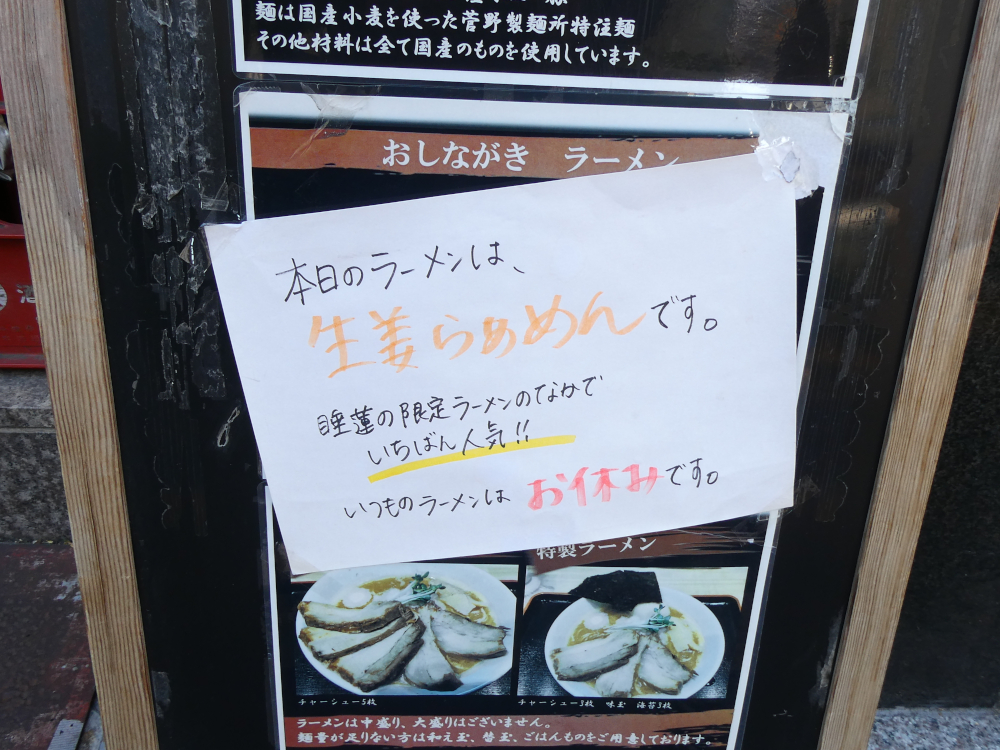 麺は国産小麦を使った菅野製麺所特注麺
その他材料は全て国産のものを使用しています。
おしながき ラーメン
本日のラーメンは、
生姜らぁめんです。
睡蓮の限定ラーメンのなかで
いちばん人気!!
いつものラーメンはお休みです。
特製ラーメン
チャーシュー5枚
チャーシュー3枚 味玉 海苔3枚
ラーメンは中盛り、大盛りはございません。
麺量が足りない方は和え玉、替玉、ごはんものをご用意しております。